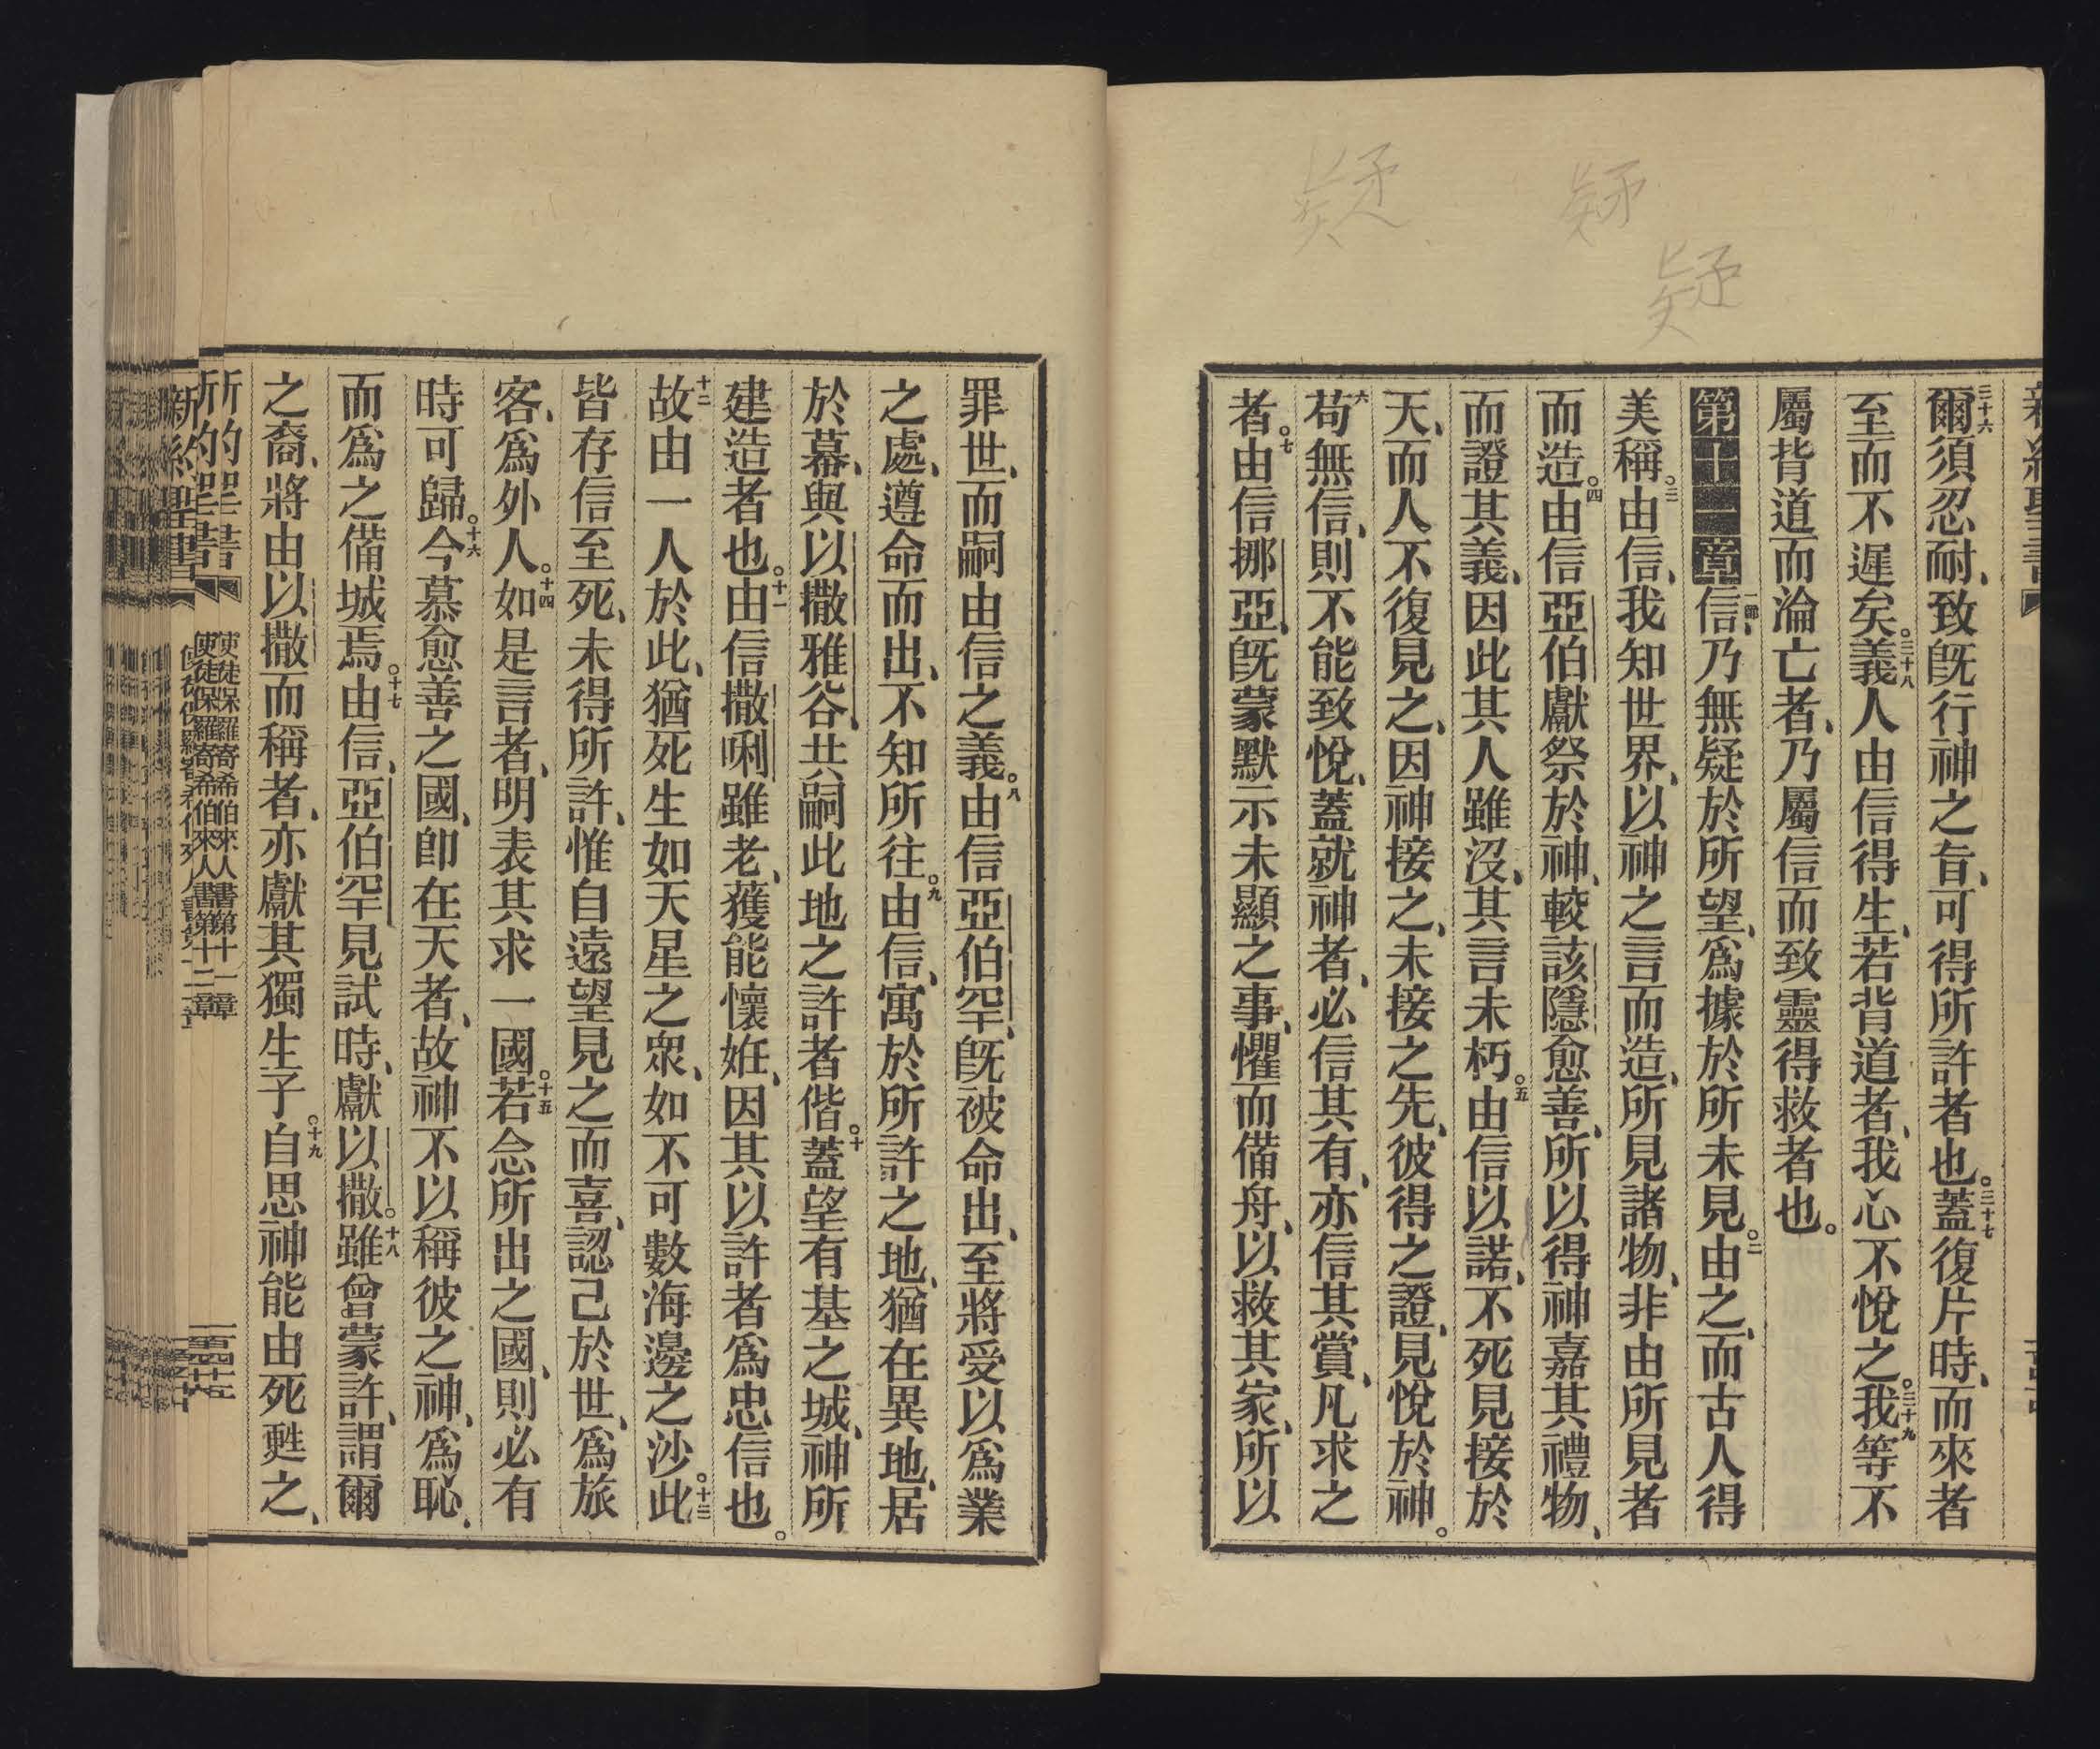 疑
疑
疑
三十六爾須忍耐、致旣行神之旨、可得所許者也。三十七蓋復片時、而來者
至而不遲矣。三十八義人由信得生、若背道者、我心不悅之。三十九我等不
屬背道而淪亡者、乃屬信而致靈得救者也。
第十一章 一節信、乃無疑於所望、爲據於所未見。二由之、而古人得
美稱。三由信、我知世界、以神之言而造、所見諸物、非由所見者
而造。四由信亞伯獻祭於神、較該隱愈善、所以得神嘉其禮物、
而證其義、因此其人雖沒、其言未朽。五由信以諾、不死見接於
天、而人不復見之、因神接之、未接之先、彼得之證、見悅於神。
六苟無信、則不能致悅、蓋就神者、必信其有、亦信其賞、凡求之
者。七由信挪亞、旣蒙默示未顯之事、懼而備舟、以救其家、所以
罪世、而嗣由信之義。八由信亞伯罕、旣被命出、至將受以爲業
之處、遵命而出、不知所往。九由信、寓於所許之地、猶在異地、居
於幕、與以撒雅谷、共嗣此地之許者偕。十蓋望有基之城、神所
建造者也。十一由信撒唎雖老、獲能懷姙、因其以許者爲忠信也。
十二故由一人於此、猶死生如天星之眾、如不可數海邊之沙。十三此
皆存信至死、未得所許、惟自遠望見之而喜、認己於世、爲旅
客、爲外人。十四如是言者、明表其求一國。十五若念所出之國、則必有
時可歸。十六今慕愈善之國、卽在天者、故神不以稱彼之神、爲恥、
而爲之備城焉。十七由信、亞伯罕見試時、獻以撒。十八雖曾蒙許、謂爾
之裔、將由以撒而稱者、亦獻其獨生子。十九自思神能由死甦之、
新約聖書
使徒保羅寄希伯來人書第十一章